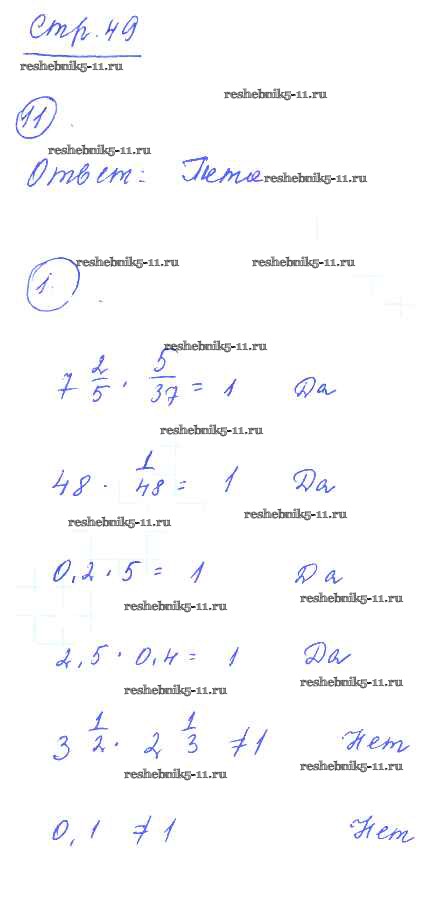 Стр. 49
reshebnik5-11.ru
reshebnik5-11.ru
11
reshebnik5-11.ru
Ответ: Петя reshebnik5-11.ru
reshebnik5-11.ru reshebnik5-11.ru
1.
reshebnik5-11.ru
7 2/5 · 5/37 = 1 Да
reshebnik5-11.ru
48 · 1/48 = 1 Да
reshebnik5-11.ru
reshebnik5-11.ru
0,2 · 5 = 1 Да
reshebnik5-11.ru
reshebnik5-11.ru
2,5 · 0,4 = 1 Да
reshebnik5-11.ru
reshebnik5-11.ru
3 1/2 · 2 1/3 ≠ 1 Нет
reshebnik5-11.ru
reshebnik5-11.ru
0,1 ≠ 1 Нет